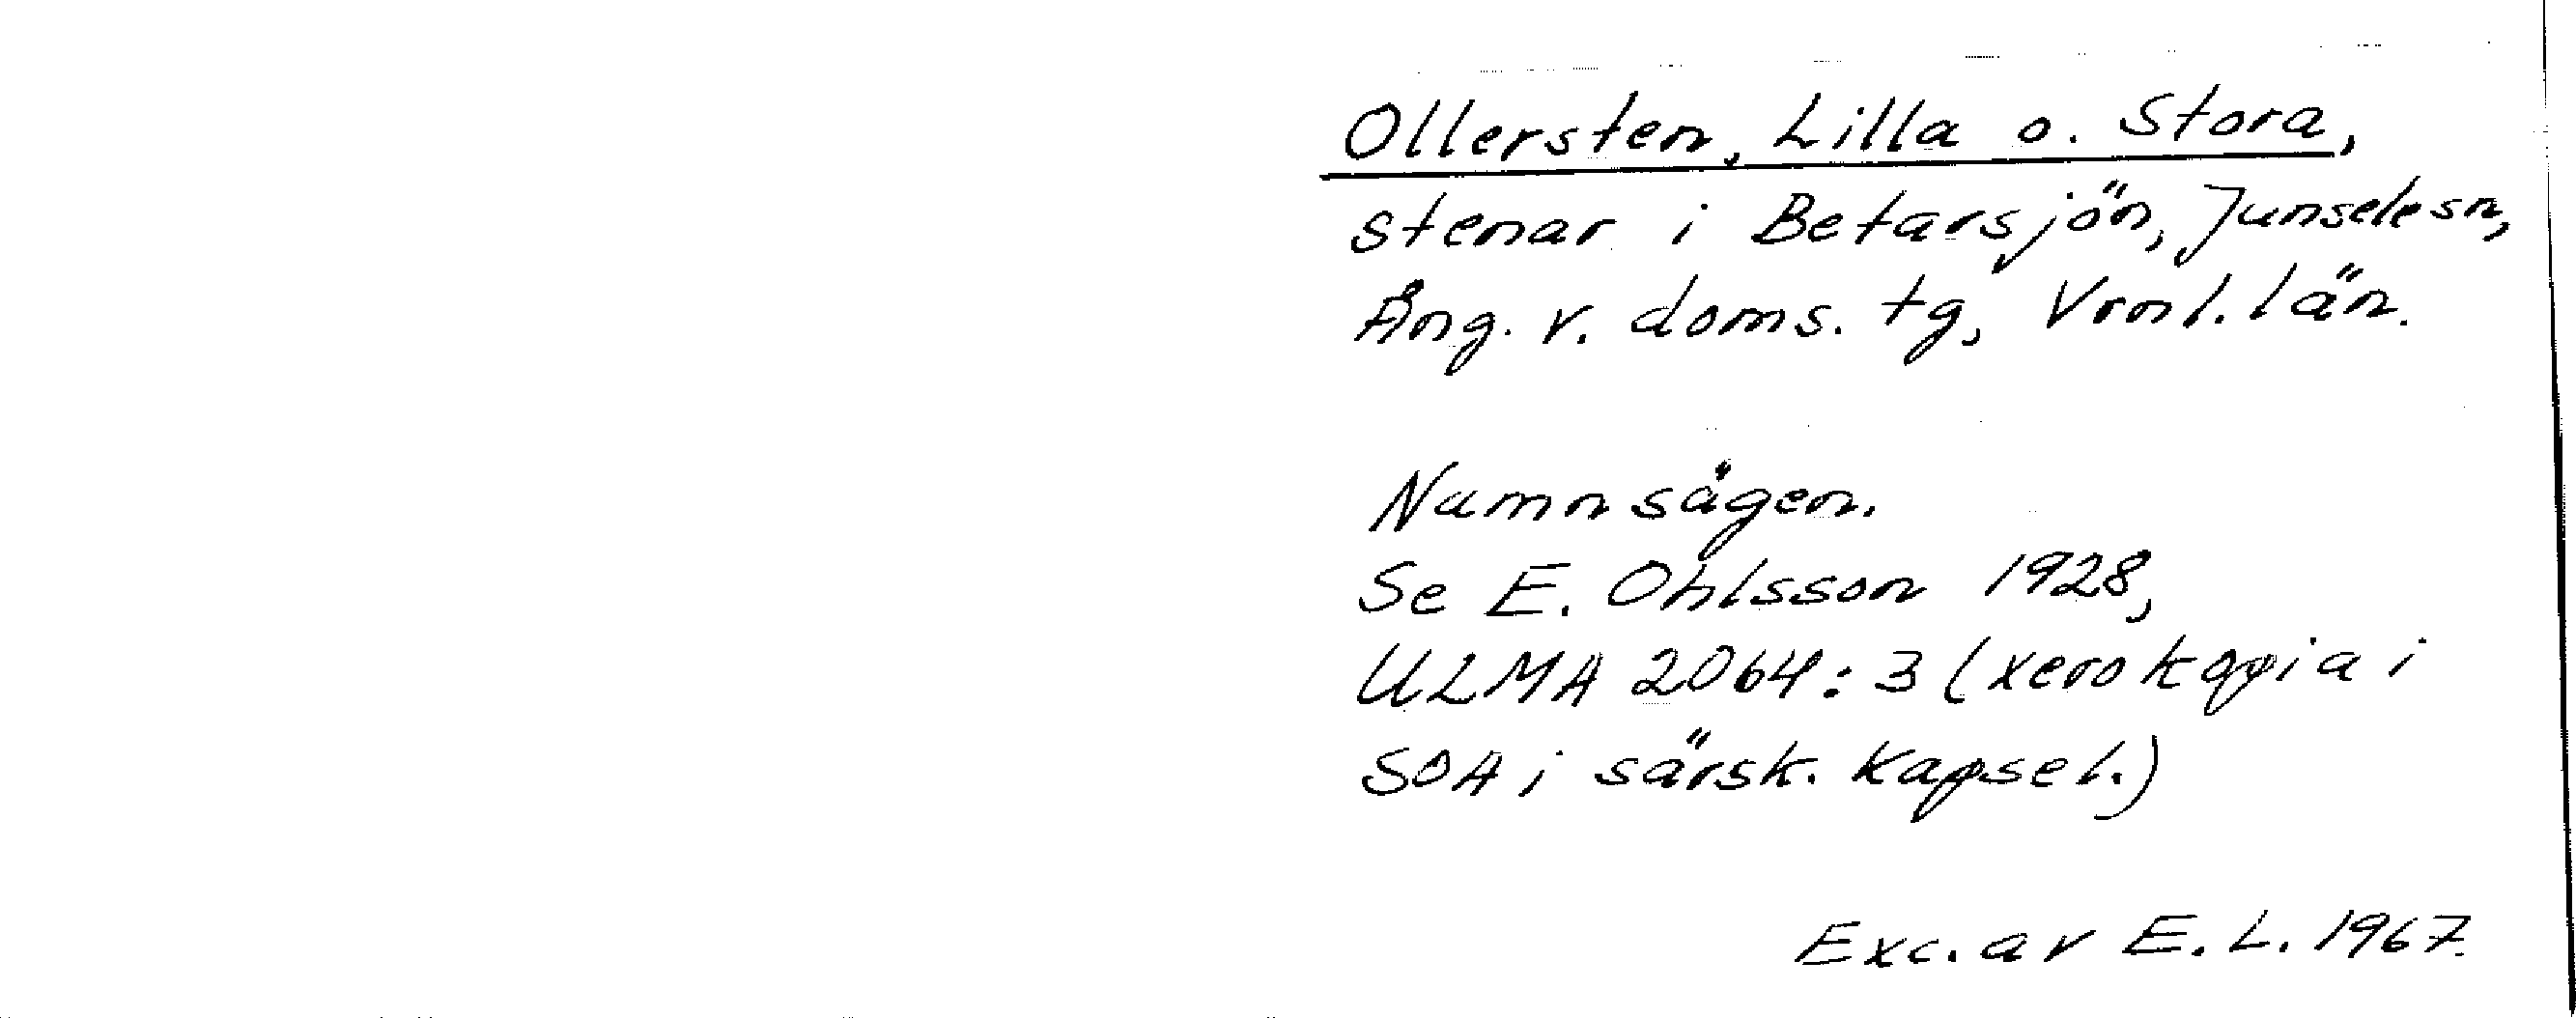 Ollersten, Lilla o. Stora,
stenar i Betarsjön, Junsele sn,
Ång. v. doms. tg, Vrnl. län.
Namnsägen.
Se E. Ohlsson 1928,
ULMA 2064:3 (xerokopia i
SOA i särsk. kapsel.)
Exc. av E. L. 1967.